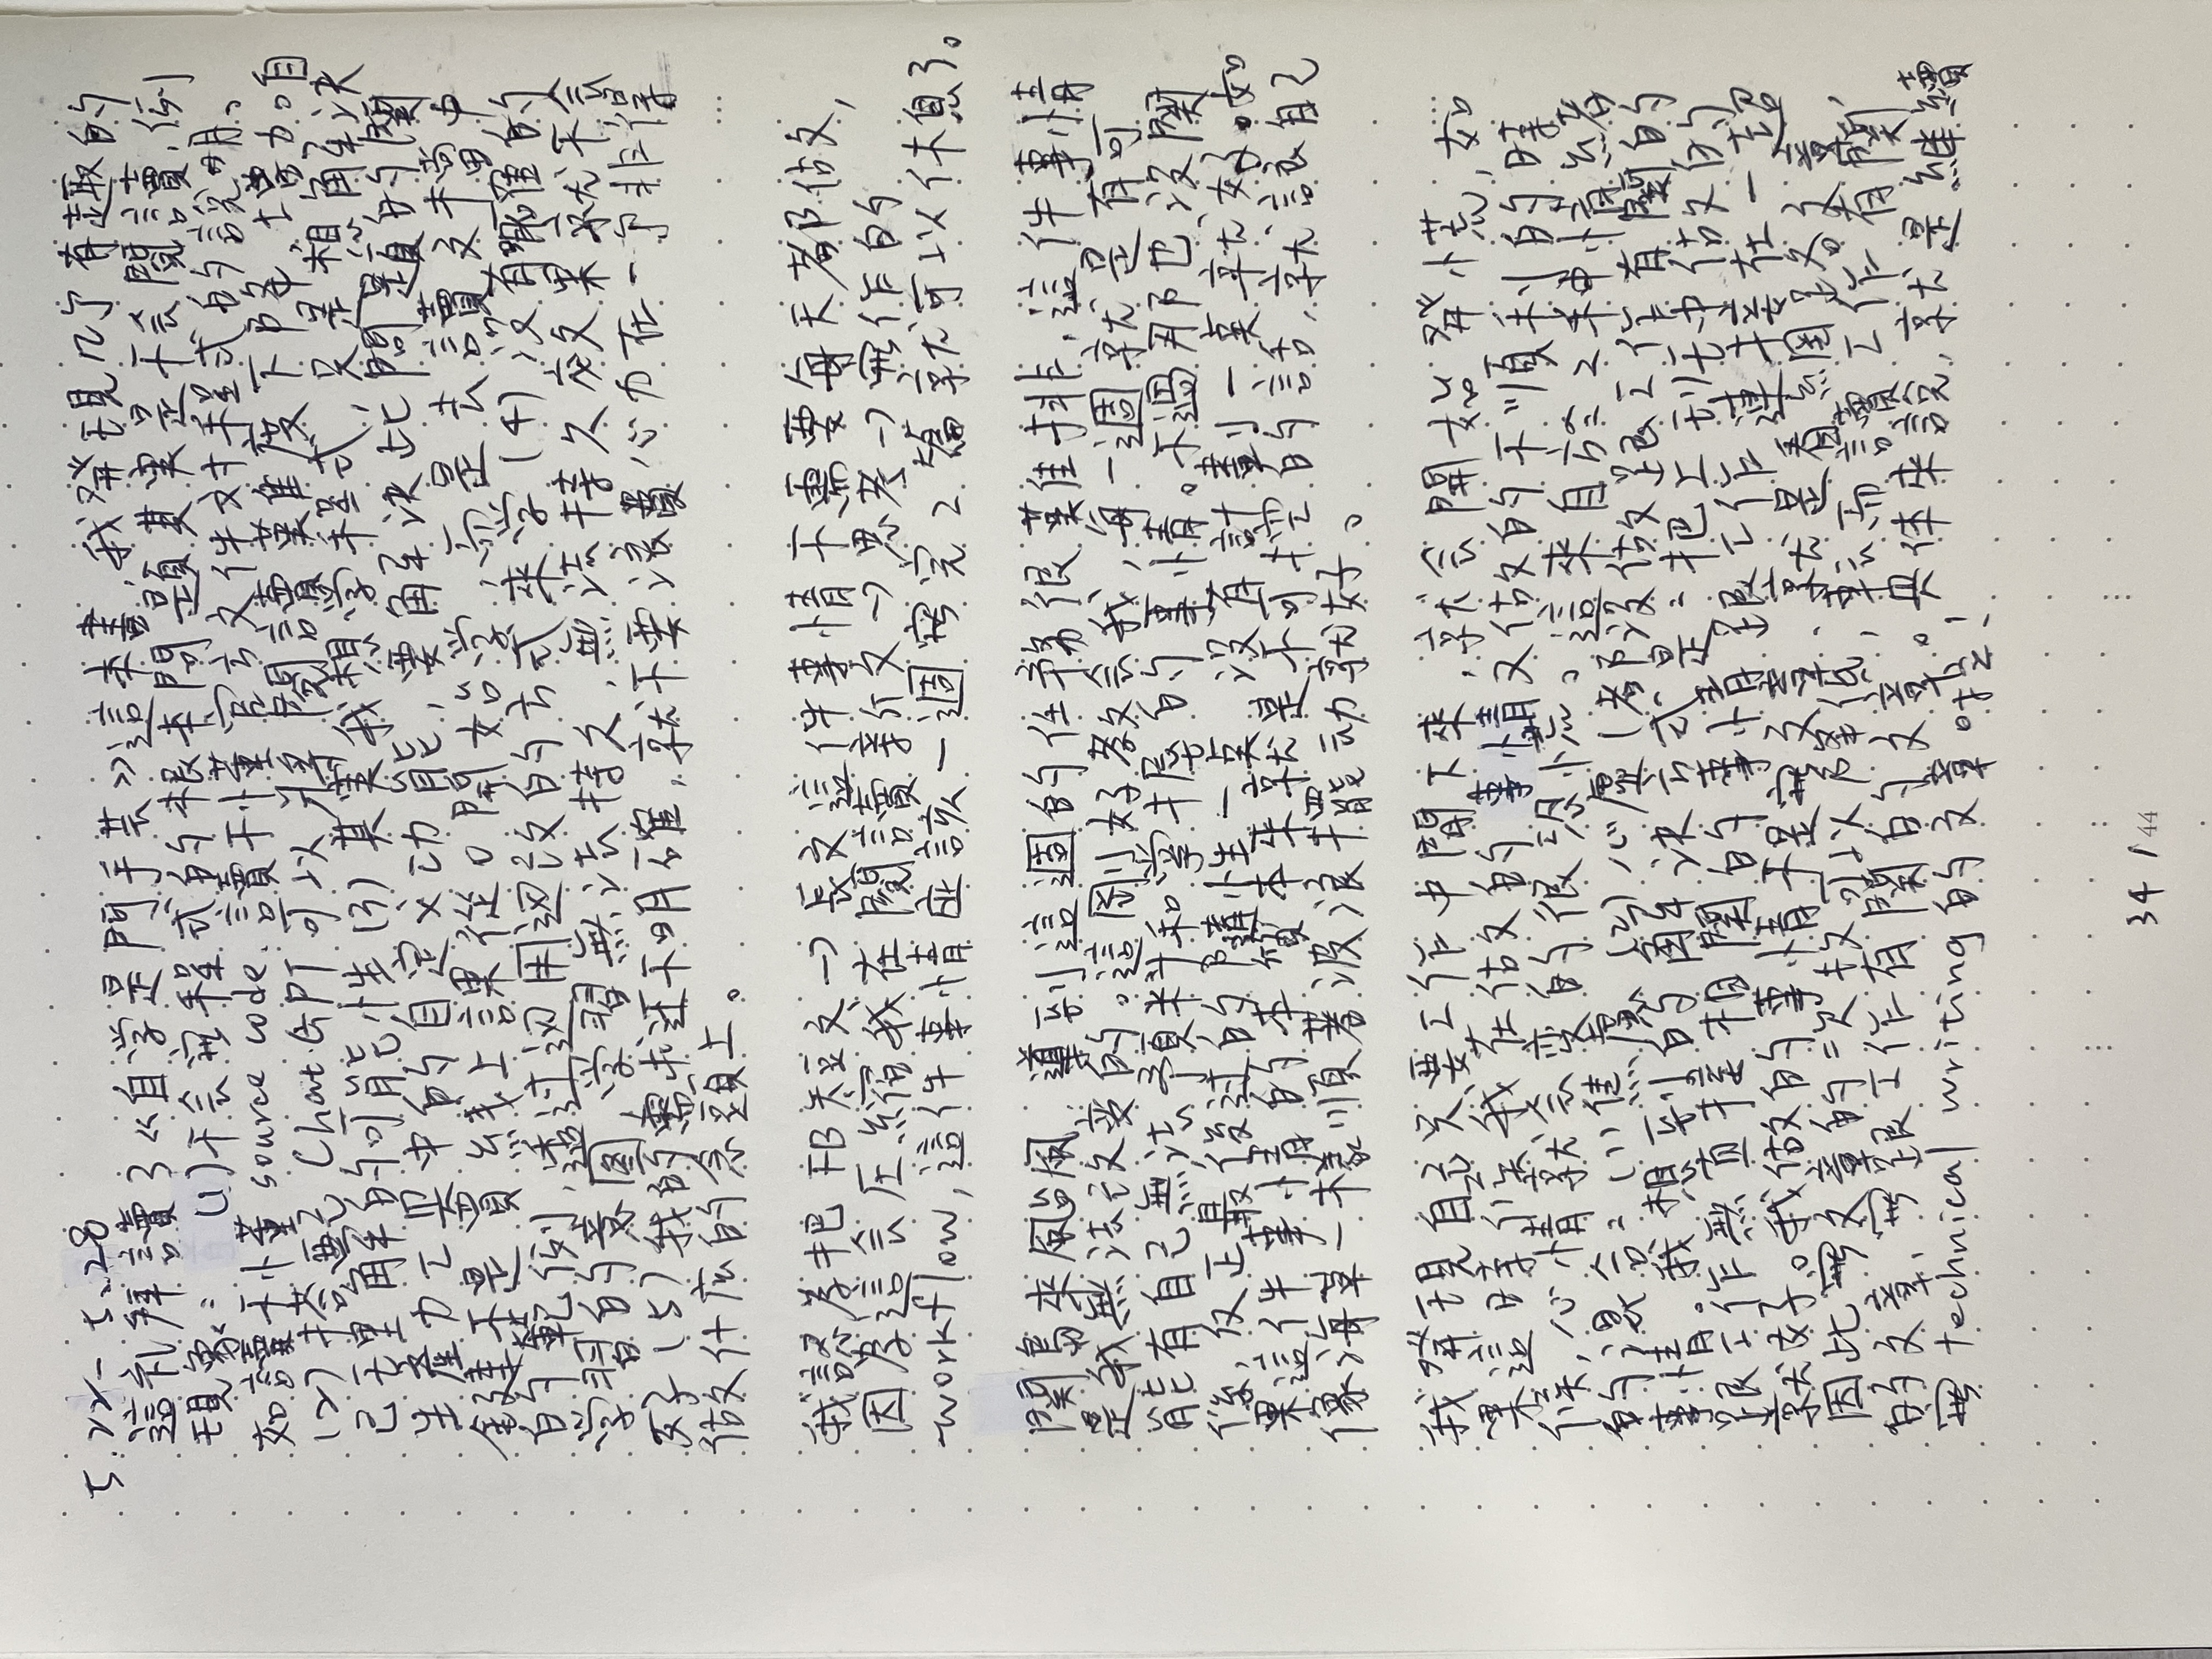 5.22-5.28
這礼拜讀了《自学是門手芸》這本書,我発現几个有趣的
現象: (1)不会寫程式的根本問題其実是不会閱讀,例
如讀不懂 source code、讀不懂官方文件对程式的說明。
(2)搭配 ChatGPT 可以將閱讀難度下降,增加自
己理解的可能性 (3)其実我想学程式,只是想解決
生產力工具中的自定义功能,要解決此問題的関
鍵不是買線上課從0開始学,而是去讀文檔中
的範例,透过边用边改的方式來学 (4)没有明確的
学習的意図,学習無法持久,無法持久效果就不会
好 (5)我的需求还不明確,就不要浪費心力在一个非得
做什庅的念頭上。
我認為把FB短文→長文這件事情不需要每天都做,
因為這会圧縮我在閱讀新文→思考→寫作的
workflow,這件事情应該一週寫完2篇就可以休息了。
関島來颱風,導到這週的任務很難排,這件事情
是我無法改变的。這剛好教会我,每一週就是有可
能有自己無法預料和掌握的事情。不過那也没関
係,反正最後过的隨性一点、没有計劃一点就好。如
果這件事情的本質本來就是不可控的話,就讓自己
像海草一樣順著波浪擺动就好。
我発現自己只要工作中閒下來,就会開始発慌,如
果這時候我在做的事情又做的不順利的時
候,心情就会变的很恐慌。這來自於2种情緒
的混合: (1)焦慮 (2)心虛(都没做跟工作有関的
事情。我想到的解決方式是:把上班中做的
跟工作無直接相関的事情跟工作連接在一起
就好。我做的事情不是寫文章,就是看網路文章,
因此寫文章的次数可以降低,転而讀工作有関
的文章、寫跟工作有関的文章。具体來說,就是継續
寫 technical writing 的文章哇!
34 / 44